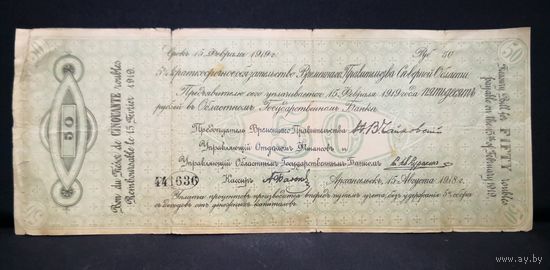 Срокъ 15 Февраля 1919 г.
Руб 50
5% Краткосрочное обязательство Временнаго Правительства Сѣверной Области.
Предъявителю сего уплачивается 15 Февраля 1919 года пятьдесятъ
рублей въ Областномъ Государственномъ Банкѣ.
Предсѣдатель Временнаго Правительства
Управляющій Отдѣломъ Финансовъ и
Управляющій Областнымъ Государственнымъ Банкомъ
441636
Кассиръ
Архангельскъ, 15 Августа 1918 г.
Уплата процентовъ производится впередъ путемъ учета, безъ удержанія 5% сбора
съ доходовъ отъ денежныхъ капиталовъ.
Bon du Trésor de CINQUANTE roubles
Remboursable le 15 Février 1919.
50
FIFTY roubles
payable on the 15th of February 1919.
50
50
50
50
50
ay.by